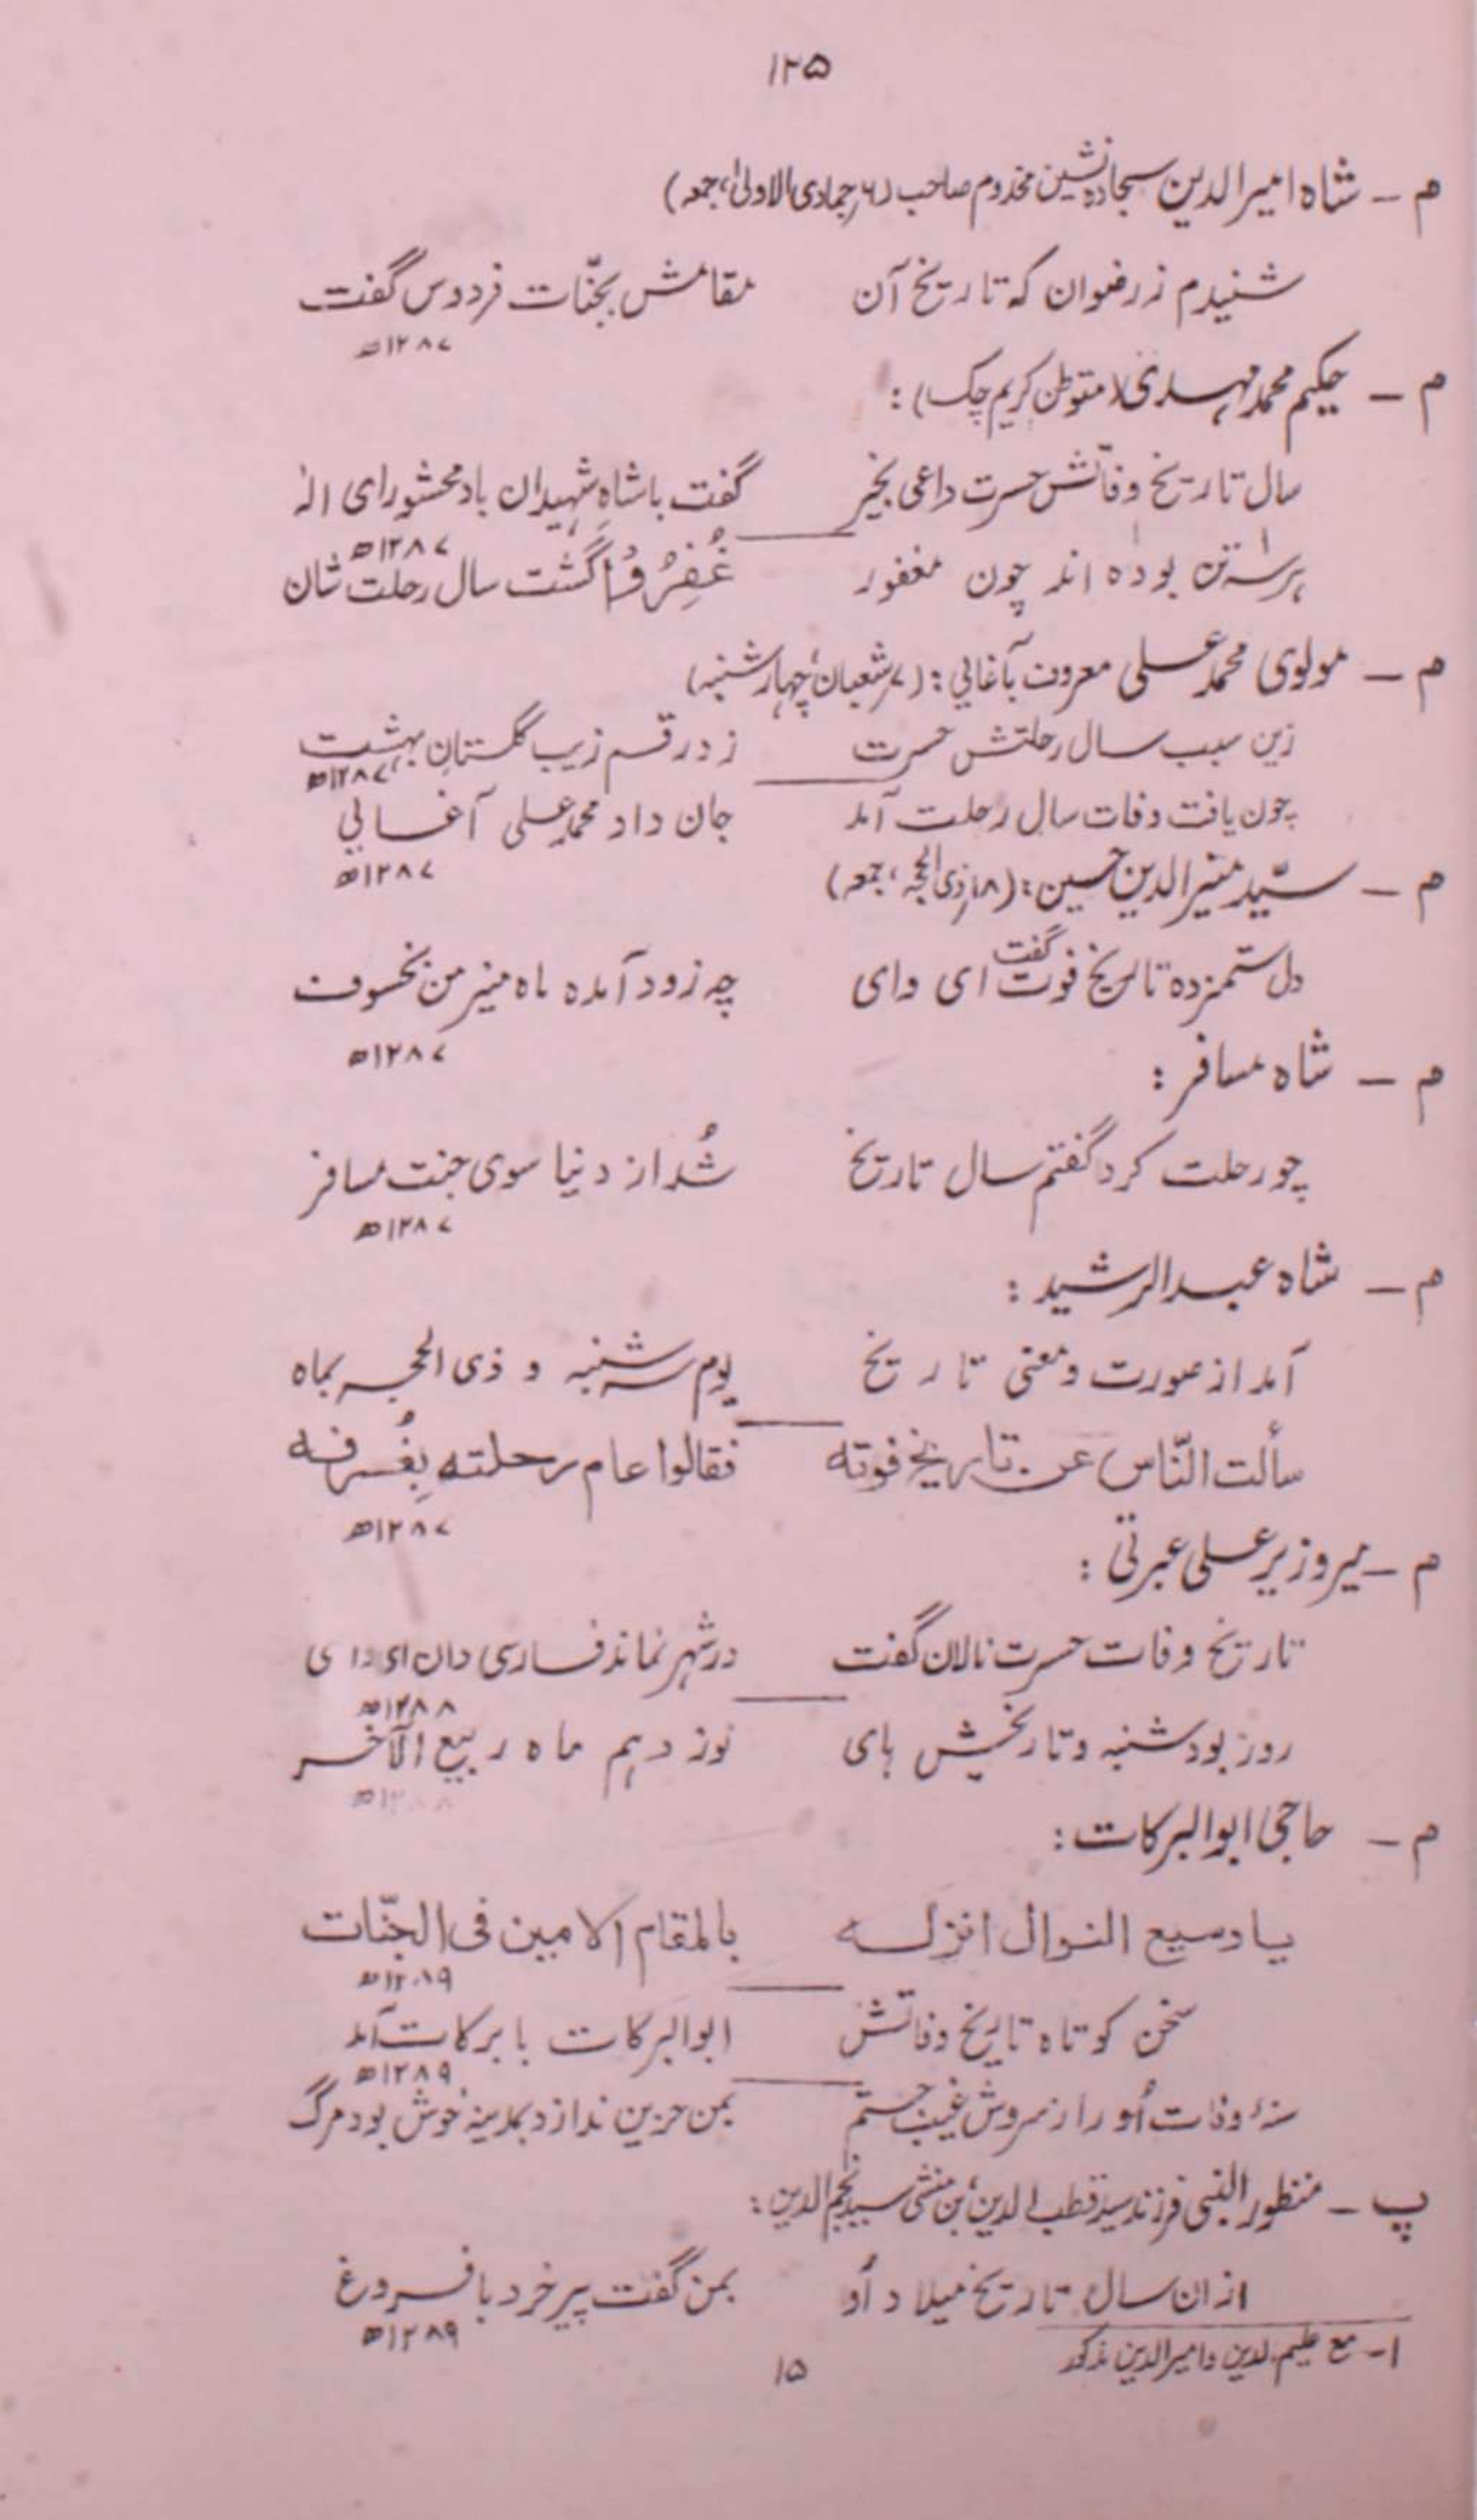 ۱۲۵
م - شاه امیرالدین سجاده نشین مخدوم صاحب (۶ جمادی الاولیٰ، جمعه)
شنیدم ز رضوان که تاریخ آن مقامش بجنّات فردوس گفت
۱۲۸۷ھ
م - حکیم محمد مهدی (متوطن کریم چک) :
سال تاریخ وفاتش حسرت داعی بخیر گفت باشاهِ شهیدان باد محشورای الٰہ
۱۲۸۷ھ
هر سه تن بوده اند چون مغفور غُفِرُوْا گشت سال رحلت شان
م - مولوی محمد علی معروف بآغائی : (۷ شعبان، چهارشنبه)
زین سبب سال رحلتش حسرت زد رقم زیب گلستانِ بهشت
۱۲۸۷ھ
چون یافت وفات سال رحلت آمد جان داد محمد علی آغائی
۱۲۸۷ھ
م - سیّد منیرالدین حسین : (۱۸ ذی الحجه، جمعه)
دل ستمزده تاریخ فوت گفت ای وای چه زود آمده ماه منیر من بخسوف
۱۲۸۷ھ
م - شاه مسافر :
چو رحلت کرد گفتم سال تاریخ شُد از دنیا سوی جنت مسافر
۱۲۸۷ھ
م - شاه عبدالرشید :
آمد از صورت و معنی تاریخ یوم سه شنبه و ذی الحجه بماه
سألت النّاس عن تاریخ فوته فقالوا عام رحلته بِغُرفه
۱۲۸۷ھ
م - میر وزیر علی عبرتی :
تاریخ وفات حسرت نالان گفت در شهر نماند فارسی دان ای وای
۱۲۸۸ھ
روز بود شنبه و تاریخش های نوزدهم ماه ربیع الآخر
۱۲۸۸ھ
م - حاجی ابوالبرکات :
یا وسیع النوال انزله بالمقام الامین فی الجنّات
۱۲۸۹ھ
سخن کوتاه تاریخ وفاتش ابوالبرکات با برکات آمد
۱۲۸۹ھ
سنۀ وفات اُو را ز سروش غیب جستم بمن حزین ندا زد بمدینه خوش بود مرگ
پ - منظور النبی فرزند سید قطب الدین، بن منشی سید نجم الدین :
ازان سال تاریخ میلاد اُو بمن گفت پیر خرد با فروغ
۱۲۸۹ھ
۱- مع علیم الدین و امیرالدین مذکور
۱۵